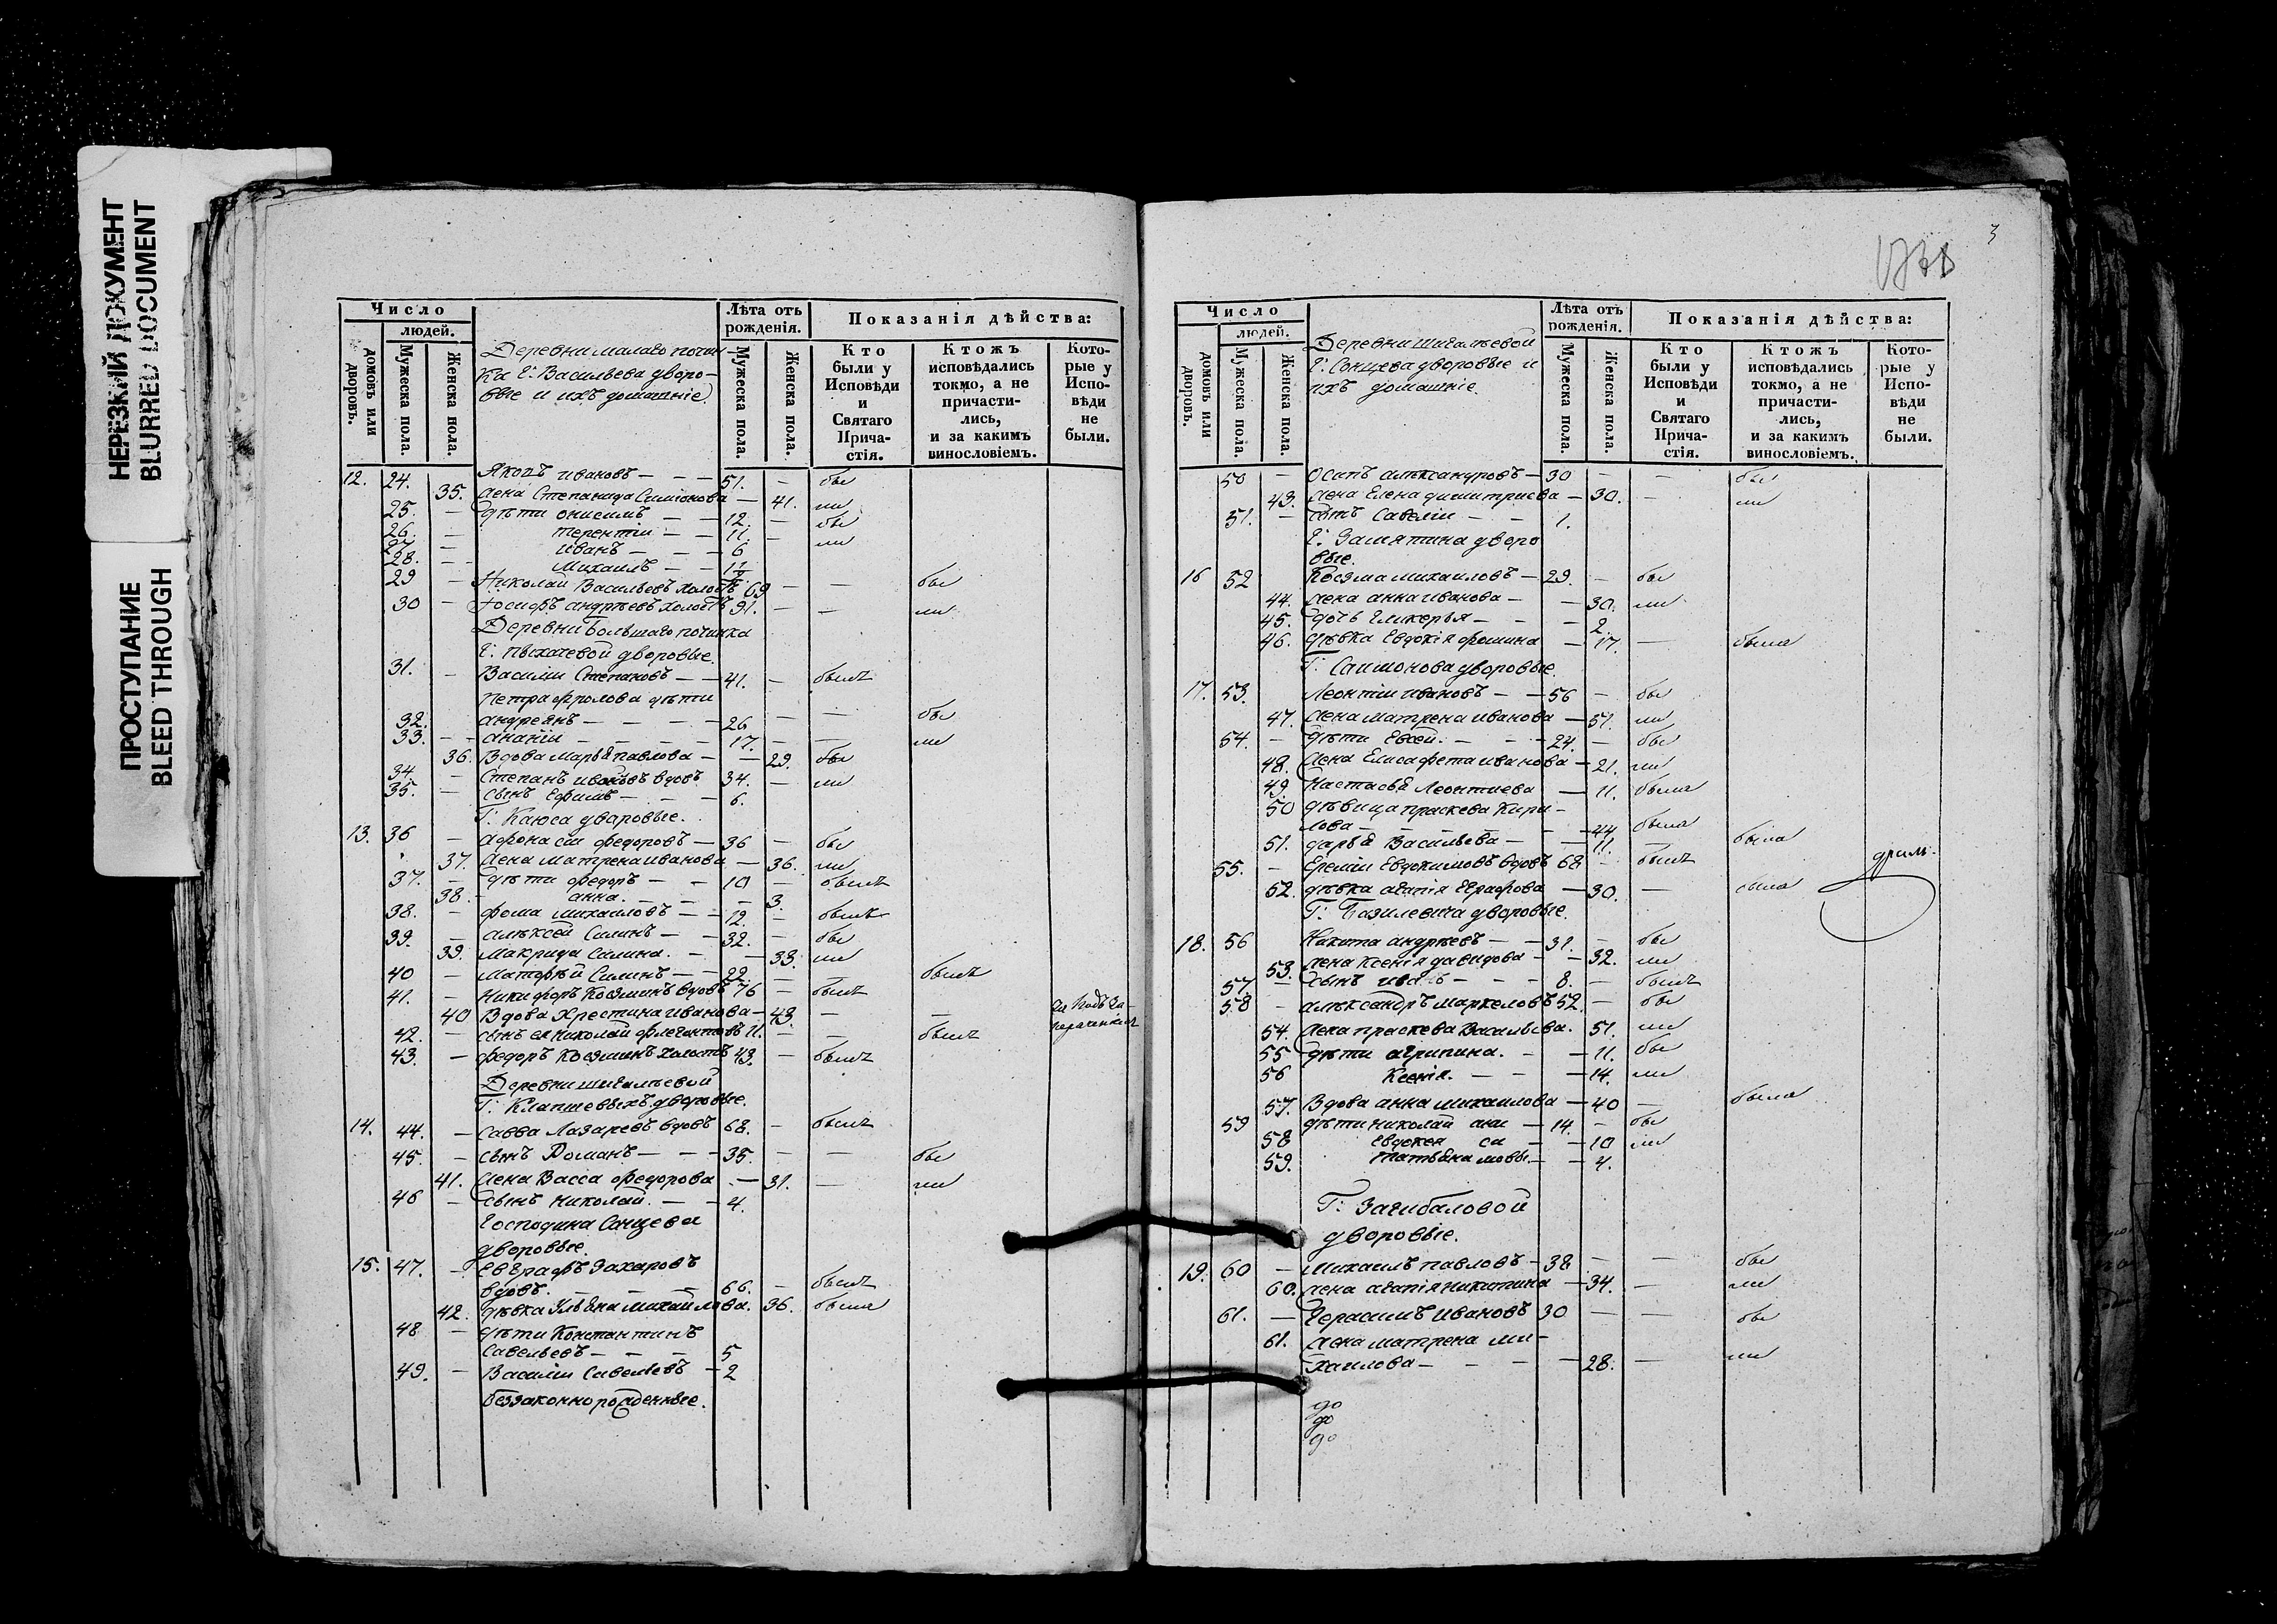 НЕРЕЗКИЙ ДОКУМЕНТ
BLURRED DOCUMENT
ПРОСТУПАНИЕ
BLEED THROUGH
Число
людей.
домовъ или дворовъ.
Мужеска пола.
Женска пола.
Деревни малаго почин-
ка Г: Васильева дворо-
вые и ихъ домашніе
Лѣта отъ рожденія.
Мужеска пола.
Женска пола.
Показанія дѣйства:
Кто были у Исповѣди и Святаго Прича-стія.
Ктожъ исповѣдались токмо, а не причасти-лись, и за какимъ винословіемъ.
Кото-рые у Испо-вѣди не были.
12. 24. Яковъ Ивановъ — — — 51. — бы
35. жена Степанида Симіонова — 41. ли
25. — дѣти Онисимъ — — 12. — бы
26. — Терентіи — — 11. — ли
27. — Иванъ — — — 6
28. — Михаилъ — —
29 — Николай Васильевъ холостъ 69 — — бы
30 — Іосифъ Андрѣевъ холостъ 31. — — ли
Деревни Большаго починка
Г: Пыхачевой дворовые.
31. — Василіи Степановъ — — 41. — былъ
Петра Фролова дѣти
32. Андреянъ — — — — 26 — — бы
33. — Ананіи — — — — 17. — — ли
36. Вдова Марья Павлова — — 29. бы
34. — Степанъ Ивановъ вдовъ 34. — ли
35. — сынъ Ефимъ — — — 6.
Г: Каюса дворовые.
13. 36 — Афонасіи Федоровъ — 36 — бы
37. жена Матрена Иванова — 36. ли
37. — дѣти Федоръ — — 10 — былъ
38. — Анна. — — — 3.
38. — Фома Михаиловъ — — 19. — былъ
39. — Алексей Силинъ — — 32. — бы
39. Макрида Салина. — — 33. ли
40 — Матфѣй Силинъ — — 22. — — былъ
41. — Никифоръ Козминъ вдовъ 76 — былъ
40 Вдова Хрестина Иванова — 43. — —
42. — сынъ ея Николай 11. — — былъ
43. — Федоръ Козминъ холостъ 43. — былъ
Деревни Шигалѣевой
Г: Клапшевыхъ дворовые.
14. 44. — Савва Лазаревъ вдовъ 68. — былъ
45. — сынъ Романъ — — — 35. — — бы
41. жена Васса Федорова — 31. — ли
46 — сынъ Николай. — — 4.
Господина Санцева
дворовые.
15. 47. — Евграфъ Захаровъ
вдовъ. — — — — 66. — былъ
42. дѣвка Ульяна Михаилова. 36. была
48 — дѣти Константинъ
Савельевъ — — — 5
49. — Василіи Савельевъ — 2
беззаконнорожденные.
3
Число
людей.
домовъ или дворовъ.
Мужеска пола.
Женска пола.
Деревни Шигалѣевой
Г: Сонцева дворовые и
ихъ домашніе.
Лѣта отъ рожденія.
Мужеска пола.
Женска пола.
Показанія дѣйства:
Кто были у Исповѣди и Святаго Прича-стія.
Ктожъ исповѣдались токмо, а не причасти-лись, и за какимъ винословіемъ.
Кото-рые у Испо-вѣди не были.
50 — Осипъ Александровъ — 30 — — бы
43. жена Елена Димитриева — 30. — ли
51. — сынъ Савеліи — — 1.
Г: Замятина дворо
вые.
16 52 Козма Михаиловъ — 29. — бы
44. жена Анна Иванова — — 30. ли
45. дочь Гликерья — — — 2
46. дѣвка Евдокія Фомина — 17. — была
Г: Саимонова дворовые.
17. 53. Леонтіи Ивановъ — — 56 — бы
47. жена Матрена Иванова — 51. ли
54. — дѣти Евсеи. — — — 24. — бы
48. жена Елисафета Иванова — 21. ли
49. Настасья Леонтиева — 11. была
50 дѣвица Праскева Кири-
лова — — — — — 44. была
51. Дарья Васильева — — 11. — была
55. — Ереміи Евдокимовъ вдовъ 68 — былъ
52. дѣвка Агапія Евграфова — 30. — была
Г: Базилевича дворовые.
18. 56 Никита Андрѣевъ — — 31. — бы
53. жена Ксенія Давидова — — 32. ли
57 — сынъ — — — 8. — былъ
58 — Александръ Маркеловъ 52. — бы
54. жена Праскева Васильева. 51. ли
55 дѣти Агрипина. — — 11. бы
56 Ксенія. — — — 14. ли
57. Вдова Анна Михаилова — 40 — была
59 дѣти Николай — 14. — бы
58 Евдокея — — 10 ли
59. Татьяна — — 4.
Г: Загибаловой
дворовые.
19. 60 — Михаилъ Павловъ — 38 — — бы
60. жена Агапія Никитина — 34. — ли
61. — Герасимъ Ивановъ 30 — — бы
61. жена Матрена Ми-
хаилова — — — — 28. — ли
до
до
до